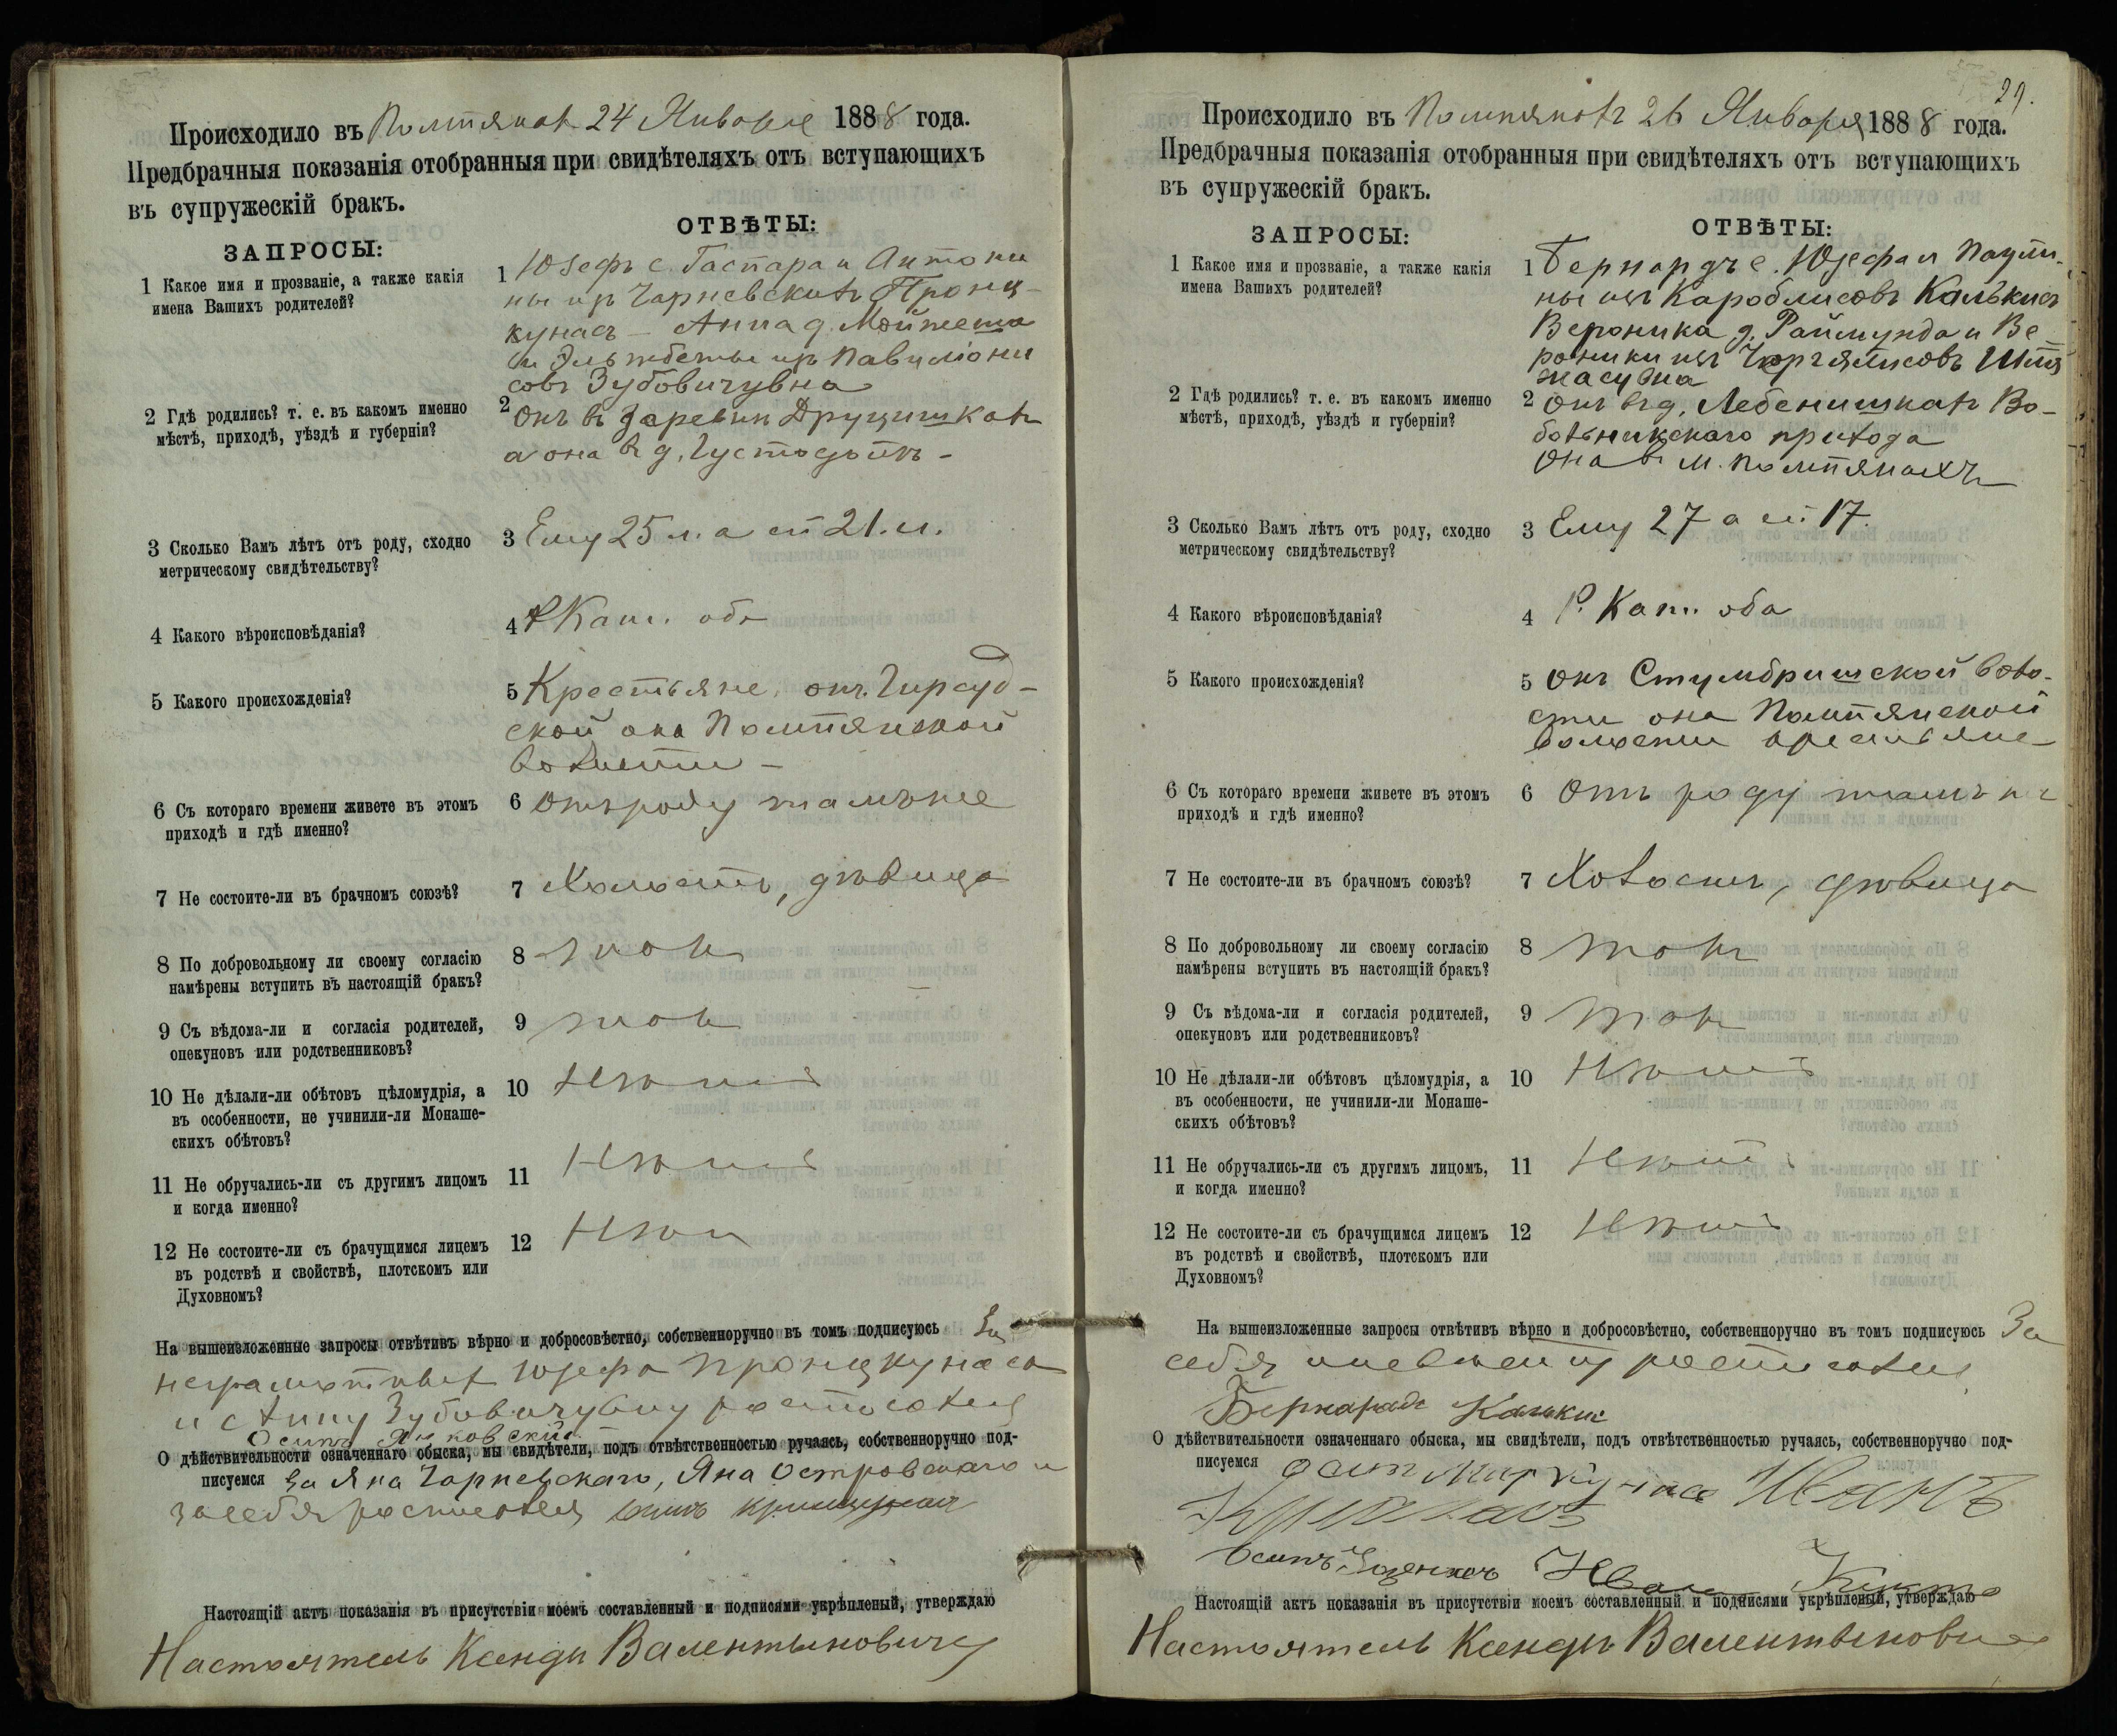 Происходило въ Помпянахъ 24 Января 1888 года.
Предбрачныя показанія отобранныя при свидѣтеляхъ отъ вступающихъ
въ супружескій бракъ.
ЗАПРОСЫ:
ОТВѢТЫ:
1 Какое имя и прозваніе, а также какія
имена Вашихъ родителей?
1 Юзефъ с. Гаспара и Антони
ны изъ Чарневскихъ Пронц-
кунасъ - Анна д.
и Эльжбеты изъ
совъ Зубовичувна
2 Гдѣ родились? т. е. въ какомъ именно
мѣстѣ, приходѣ, уѣздѣ и губерніи?
2 Онъ въ деревни Друцишкахъ
а она въ д.
3 Сколько Вамъ лѣтъ отъ роду, сходно
метрическому свидѣтельству?
3 Ему 25 л. а ей 21. л.
4 Какого вѣроисповѣданія?
4 Р Кат. оба
5 Какого происхожденія?
5 Крестьяне, онъ Гирсуд-
ской она Помпянской
волости -
6 Съ котораго времени живете въ этомъ
приходѣ и гдѣ именно?
6 Отъ роду тамъ же
7 Не состоите-ли въ брачномъ союзѣ?
7 Холостъ, дѣвица
8 По добровольному ли своему согласію
намѣрены вступить въ настоящій бракъ?
8 такъ
9 Съ вѣдома-ли и согласія родителей,
опекуновъ или родственниковъ?
9 такъ
10 Не дѣлали-ли обѣтовъ цѣломудрія, а
въ особенности, не учинили-ли Монаше-
скихъ обѣтовъ?
10 Нѣтъ
11 Не обручались-ли съ другимъ лицомъ
и когда именно?
11 Нѣтъ
12 Не состоите-ли съ брачущимся лицемъ
въ родствѣ и свойствѣ, плотскомъ или
Духовномъ?
12 Нѣтъ
На вышеизложенные запросы отвѣтивъ вѣрно и добросовѣстно, собственноручно въ томъ подписуюсь За
неграмотныхъ Юзефа Пронцкунаса
и Анну Зубовичувну росписался
Осипъ Янковскій
О дѣйствительности означеннаго обыска, мы свидѣтели, подъ отвѣтственностью ручаясь, собственноручно под-
писуемся За Яна Чарневскаго, Яна Островскаго и
за себя росписался Осипъ
Настоящій актъ показанія въ присутствіи моемъ составленный и подписями укрѣпленый, утверждаю
Настоятель Ксендзъ Валентыновичъ
29.
Происходило въ Помпянахъ 26 Января 1888 года.
Предбрачныя показанія отобранныя при свидѣтеляхъ отъ вступающихъ
въ супружескій бракъ.
ЗАПРОСЫ:
ОТВѢТЫ:
1 Какое имя и прозваніе, а также какія
имена Вашихъ родителей?
1 Бернардъ с. Юзефа и Паули-
ны изъ Кароблисовъ Калькисъ
Вероника д. Раймунда и Ве-
роники изъ
2 Гдѣ родились? т. е. въ какомъ именно
мѣстѣ, приходѣ, уѣздѣ и губерніи?
2 Онъ въ д. Лебенишкахъ Во-
больникскаго прихода
Она въ м. Помпянахъ
3 Сколько Вамъ лѣтъ отъ роду, сходно
метрическому свидѣтельству?
3 Ему 27 а ей 17.
4 Какого вѣроисповѣданія?
4 Р. Кат. оба
5 Какого происхожденія?
5 Онъ Стумбришской воло-
сти она Помпянской
волости крестьяне
6 Съ котораго времени живете въ этомъ
приходѣ и гдѣ именно?
6 Отъ роду тамъ же
7 Не состоите-ли въ брачномъ союзѣ?
7 Холостъ, дѣвица
8 По добровольному ли своему согласію
намѣрены вступить въ настоящій бракъ?
8 такъ
9 Съ вѣдома-ли и согласія родителей,
опекуновъ или родственниковъ?
9 такъ
10 Не дѣлали-ли обѣтовъ цѣломудрія, а
въ особенности, не учинили-ли Монаше-
скихъ обѣтовъ?
10 Нѣтъ
11 Не обручались-ли съ другимъ лицомъ,
и когда именно?
11 Нѣтъ
12 Не состоите-ли съ брачущимся лицемъ
въ родствѣ и свойствѣ, плотскомъ или
Духовномъ?
12 Нѣтъ
На вышеизложенные запросы отвѣтивъ вѣрно и добросовѣстно, собственноручно въ томъ подписуюсь За
себя и невѣсту росписался
Бернарадъ Калькис
О дѣйствительности означеннаго обыска, мы свидѣтели, подъ отвѣтственностью ручаясь, собственноручно под-
писуемся Осипъ Иванъ
Осипъ Иванъ
Настоящій актъ показанія въ присутствіи моемъ составленный и подписями укрѣпленый, утверждаю
Настоятель Ксендзъ Валентыновичъ